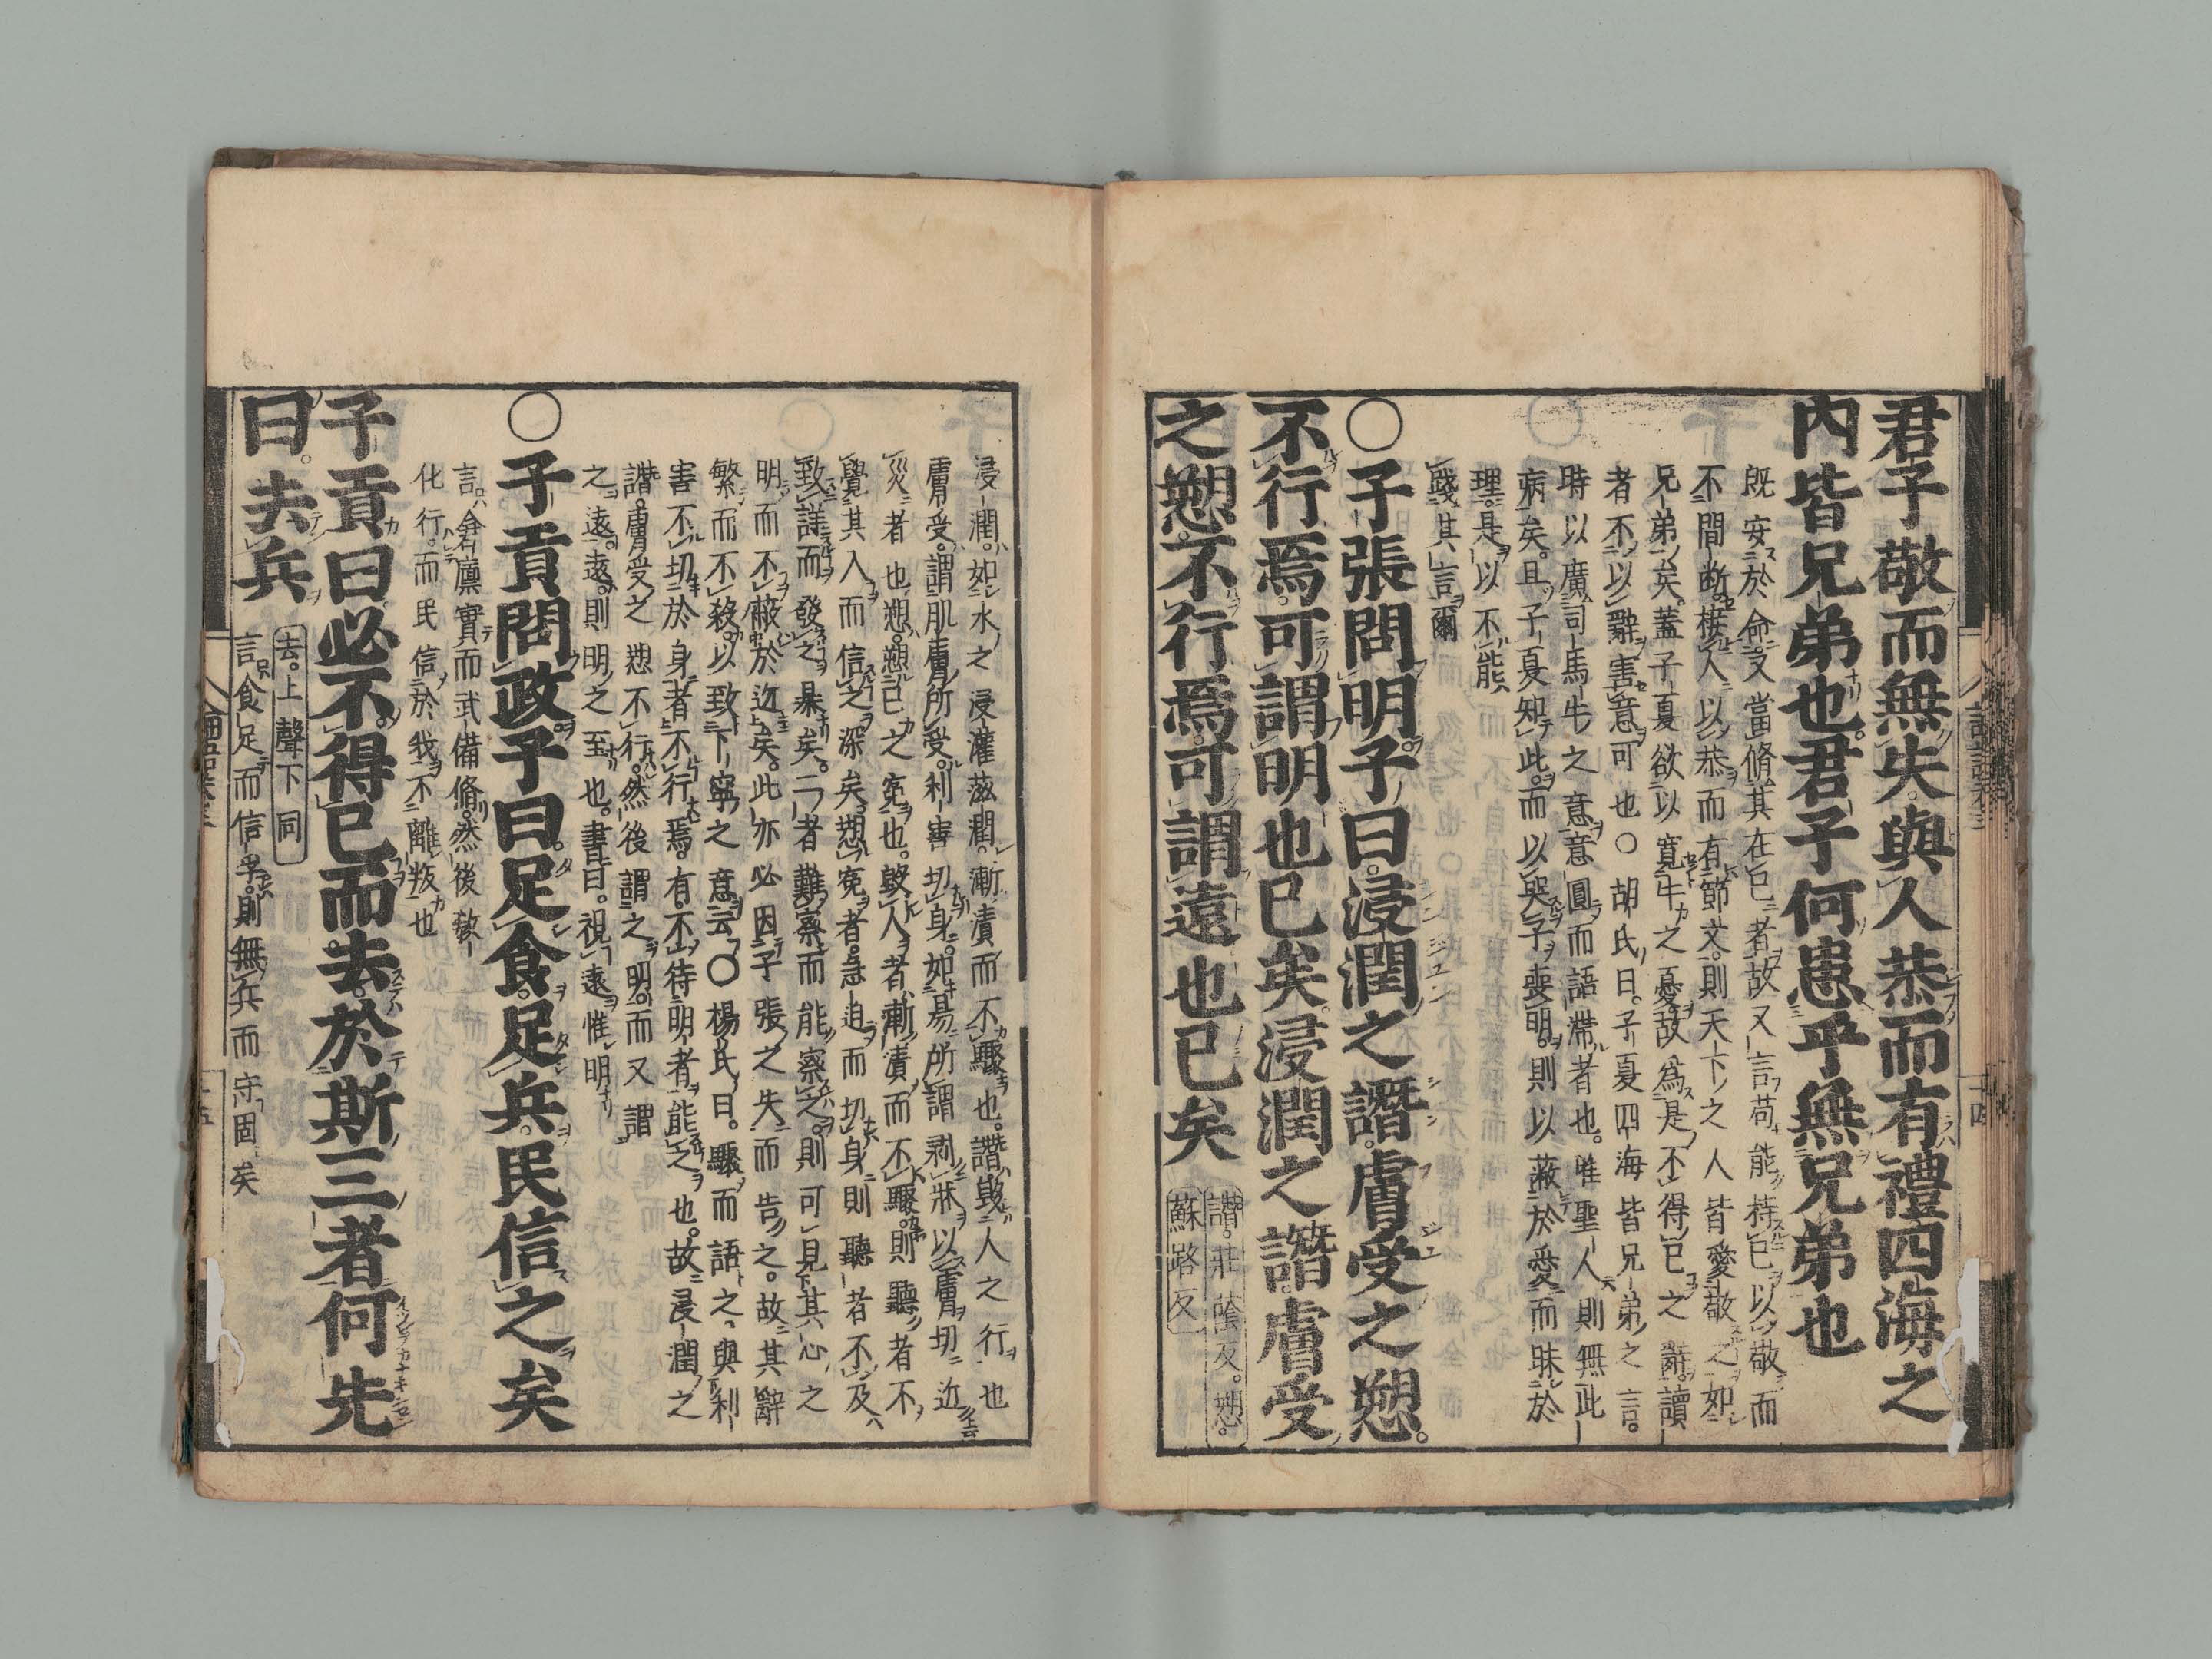 君子敬而無失與人恭而有禮四海之
內皆兄弟也君子何患乎無兄弟也
既安於命又當脩其在己者故又言苟能持己以敬而
不間斷接人以恭而有節文則天下之人皆愛敬之如
兄弟矣蓋子夏欲以寬牛之憂故爲是不得已之辭讀
者不以辭害意可也○胡氏曰子夏四海皆兄弟之言
特以廣司馬牛之意意圓而語滯者也唯聖人則無此
病矣且子夏知此而以哭子喪明則以蔽於愛而昧於
理是以不能
踐其言爾
○子張問明子曰浸潤之譖膚受之愬
不行焉可謂明也已矣浸潤之譖膚受
之愬不行焉可謂遠也已矣
譖莊蔭反愬
蘇路反
浸潤如水之浸灌滋潤漸漬而不驟也譖毀人之行也
膚受謂肌膚所受利害切身如易所謂剥牀以膚切近
災者也愬愬己之寃也毀人者漸漬而不驟則聽者不
覺其入而信之深矣愬寃者急迫而切身則聽者不及
致詳而發之暴矣二者難察而能察之則可見其心之
明而不蔽於近矣此亦必因子張之失而告之故其辭
繁而不殺以致丁寧之意云○楊氏曰驟而語之與利
害不切於身者不行焉有不待明者能之也故浸潤之
譖膚受之愬不行然後謂之明而又謂
之遠遠則明之至也書曰視遠惟明
○子貢問政子曰足食足兵民信之矣
言倉廩實而武備脩然後敎
化行而民信於我不離叛也
子貢曰必不得已而去於斯三者何先
曰去兵
去上聲下同
言食足而信孚則無兵而守固矣